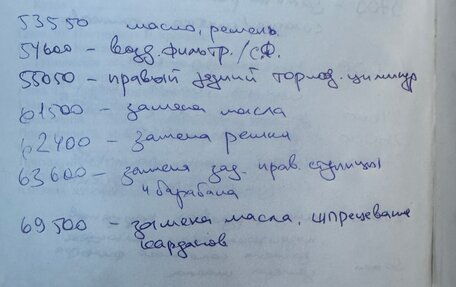 53550 масло, ремень
54600 - возд. фильтр./с.ф.
55050 - правый задний тормоз. цилиндр
61500 - замена масла
62400 - замена ремня
63600 - замена зад. прав. ступицы
и барабана
69500 - замена масла, шприцевание
карданов